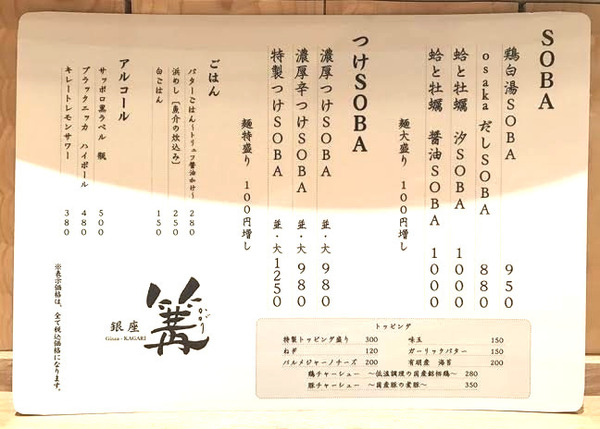 SOBA
鶏白湯SOBA 950
osakaだしSOBA 880
蛤と牡蠣 汐SOBA 1000
蛤と牡蠣 醤油SOBA 1000
麺大盛り 100円増し
つけSOBA
濃厚つけSOBA 並・大 980
濃厚辛つけSOBA 並・大 980
特製つけSOBA 並・大 1250
麺特盛り 100円増し
ごはん
バターごはん〜トリュフ醤油かけ〜 280
浜めし〔魚介の炊込み〕 250
白ごはん 150
アルコール
サッポロ黒ラベル 瓶 500
ブラックニッカ ハイボール 480
キレートレモンサワー 380
※表示価格は、全て税込価格になります。
銀座
Ginza - KAGARI
篝
かがり
トッピング
特製トッピング盛り 300
ねぎ 120
パルメジャーノチーズ 200
味玉 150
ガーリックバター 150
有明産 海苔 200
鶏チャーシュー 〜低温調理の国産銘柄鶏〜 280
豚チャーシュー 〜国産豚の煮豚〜 350